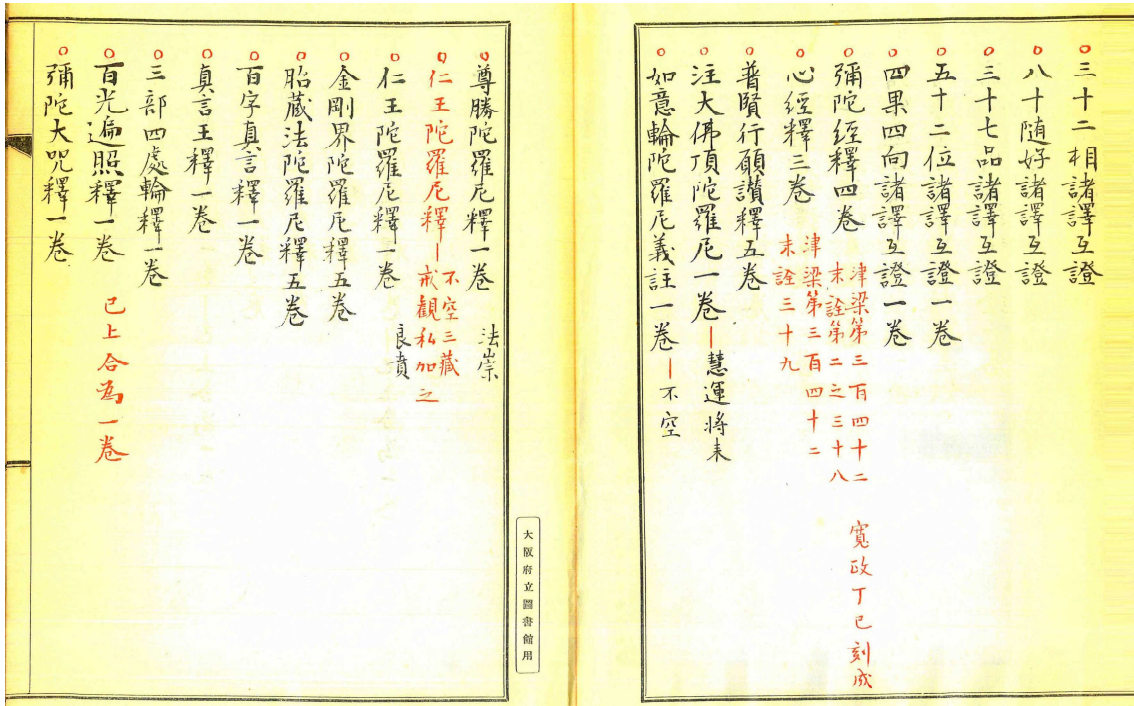 ○三十二相諸譯互證
○八十随好諸譯互證
○三十七品諸譯互證
○五十二位諸譯互證一卷
○四果四向諸譯互證一卷
○彌陀經釋四卷 津梁第三百四十二 寬政丁巳刻成
末詮第二之三十八
○心經釋三卷 津梁第三百四十二
末詮三十九
○普賢行願讃釋五卷
○注大佛頂陀羅尼一卷—慧運将来
○如意輪陀羅尼義註一卷—不空
○尊勝陀羅尼釋一卷 法崇
○仁王陀羅尼釋—不空三藏
戒觀私加之
○仁王陀羅尼釋一卷 良賁
○金剛界陀羅尼釋五卷
○胎蔵法陀羅尼釋五卷
○百字真言釋一卷
○真言王釋一卷
○三部四處輪釋一卷
○百光遍照釋一卷 已上合為一卷
○彌陀大咒釋一卷
大阪府立圖書館用